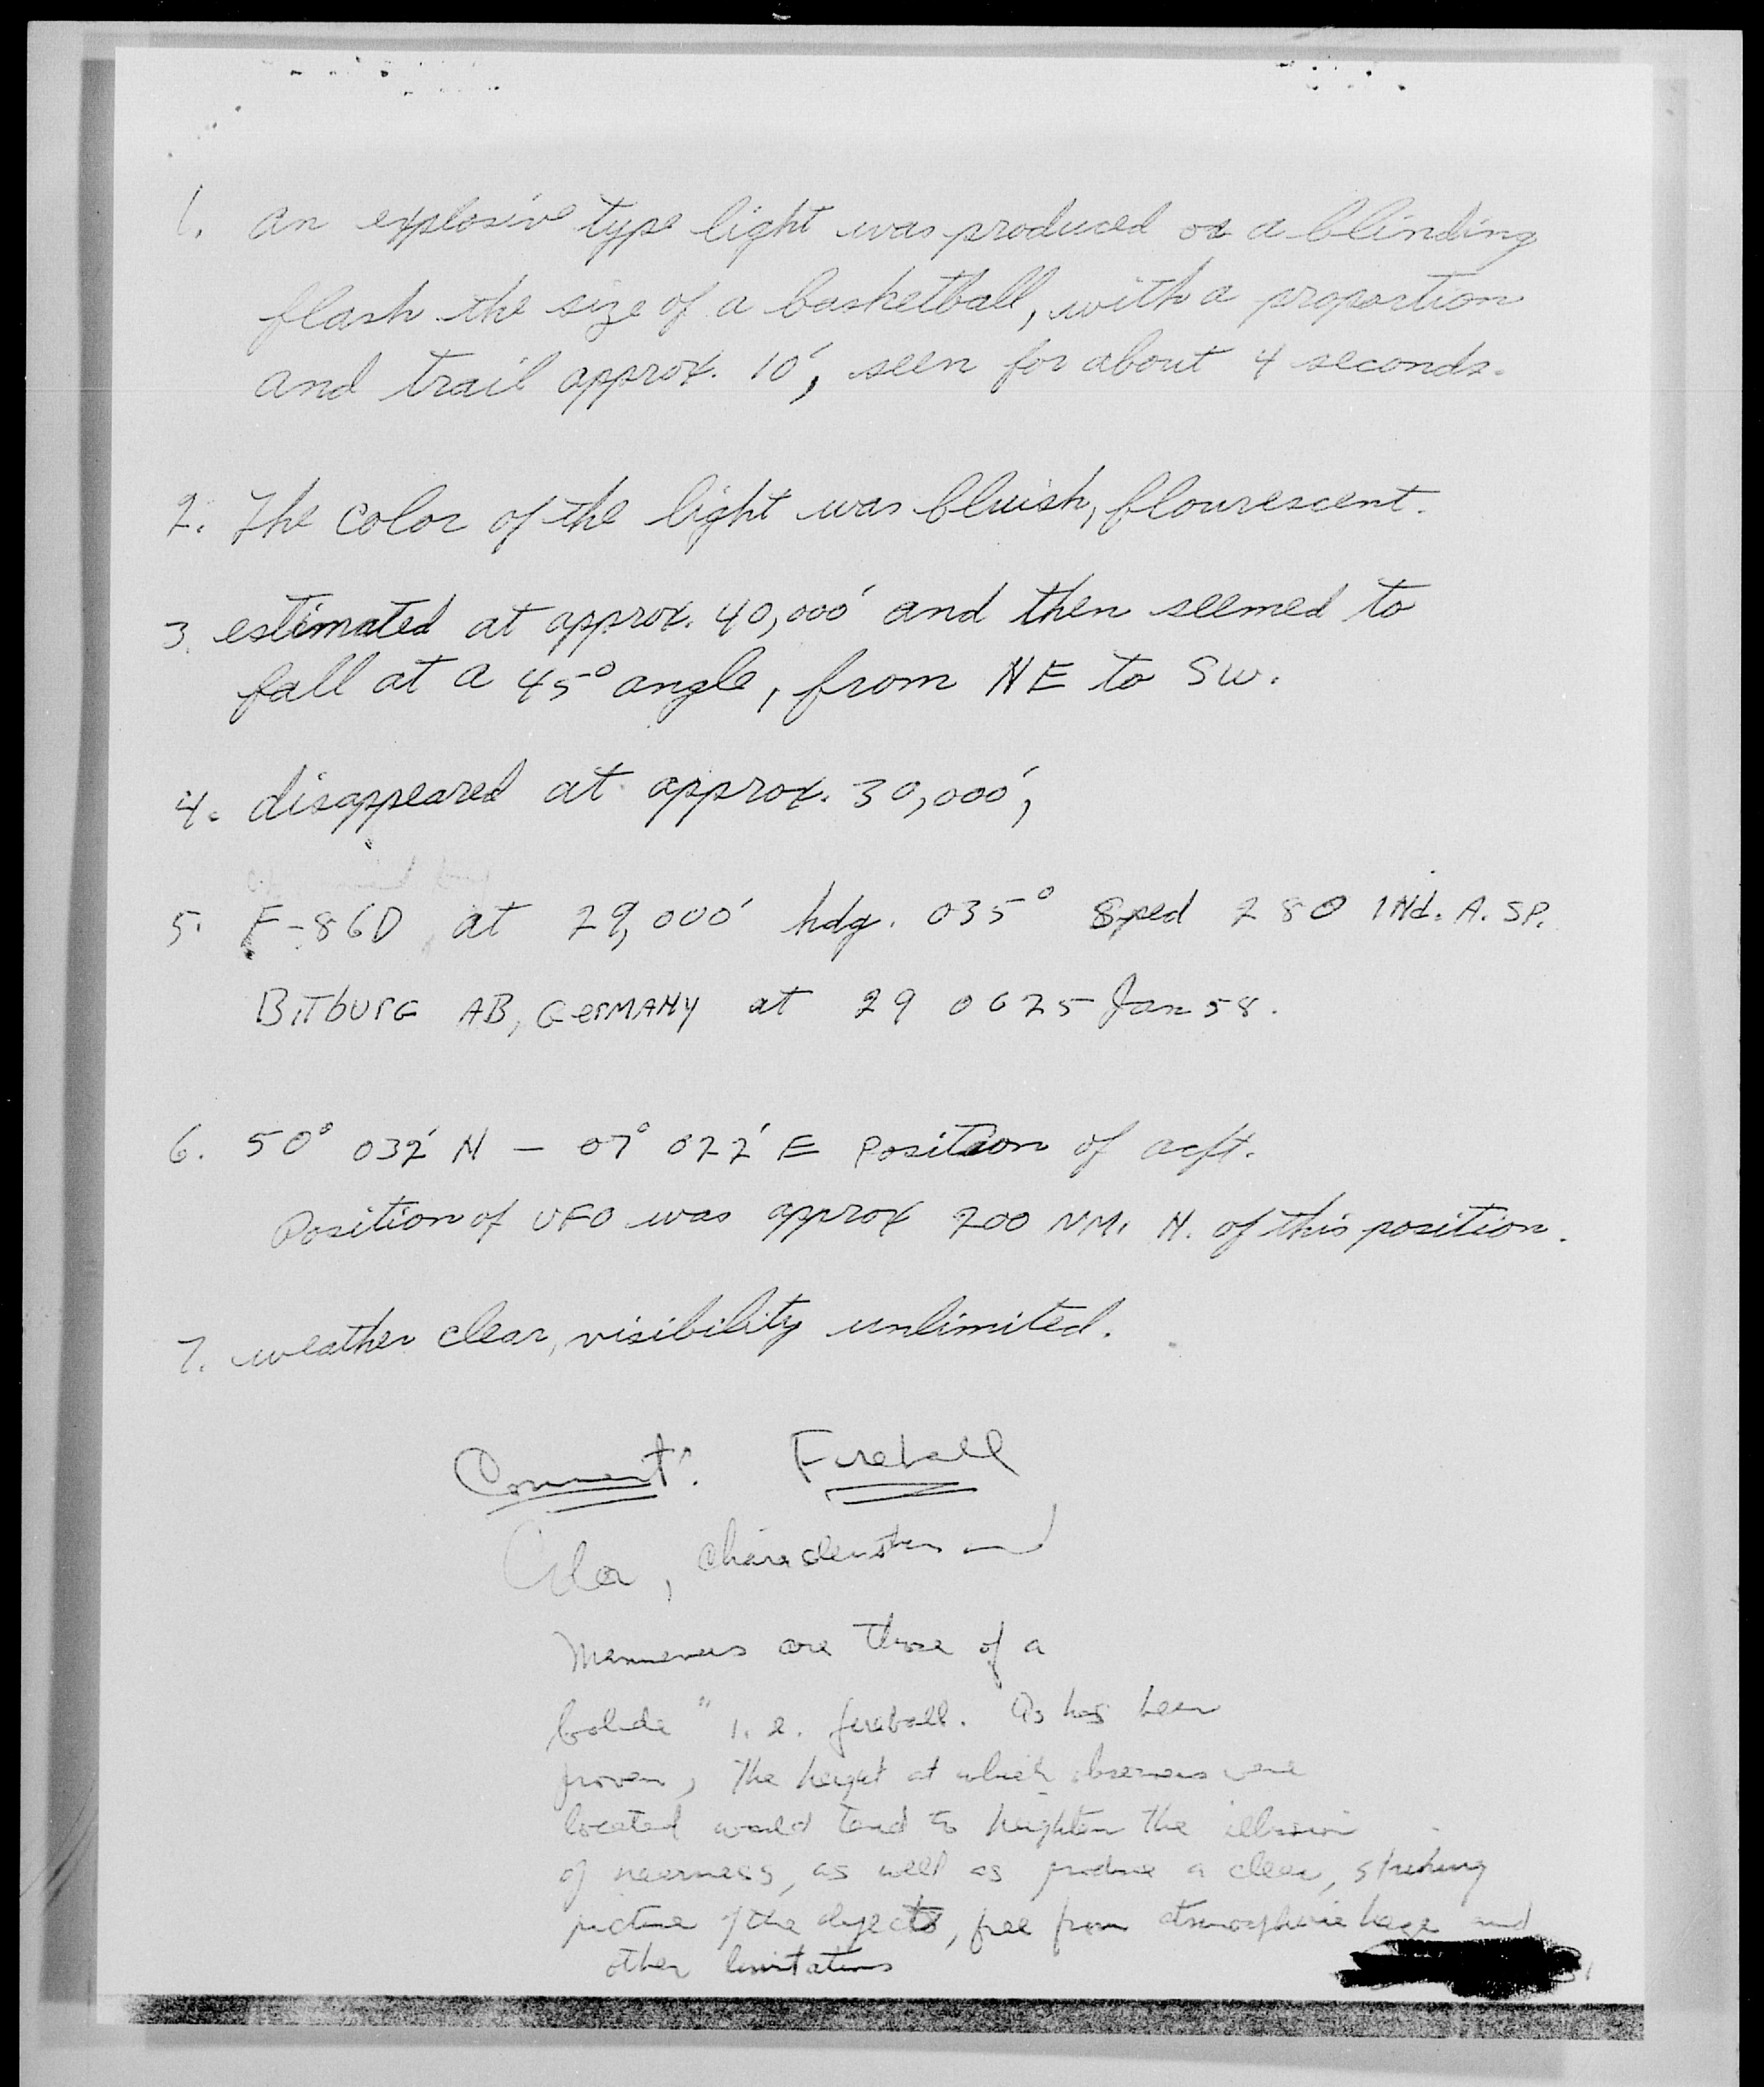 1. An explosive type light was produced as a blinding
flash the size of a basketball, with a proportion
and trail approx. 10', seen for about 4 seconds.
2. The color of the light was bluish, flourescent.
3. estimated at approx. 40,000' and then seemed to
fall at a 45° angle, from NE to SW.
4. disappeared at approx. 30,000',
5. F-86D at 29,000' hdg. 035° Sped 280 INd. A. SP.
BITbURG AB, GERMANY at 29 0625 Jan 58.
6. 50° 032' N - 07° 022' E Position of acft.
Position of UFO was approx 200 NM. N. of this position.
7. weather clear, visibility unlimited.
Comment: Fireball
Color, characteristics and
Manneuvers are those of a
bolide" i.e. fireball. As has been
proven, The height at which observers were
located would tend to heighten the illusion
of nearness, as well as produce a clear, striking
picture of the objects, free from atmospheric haze and
other limitations